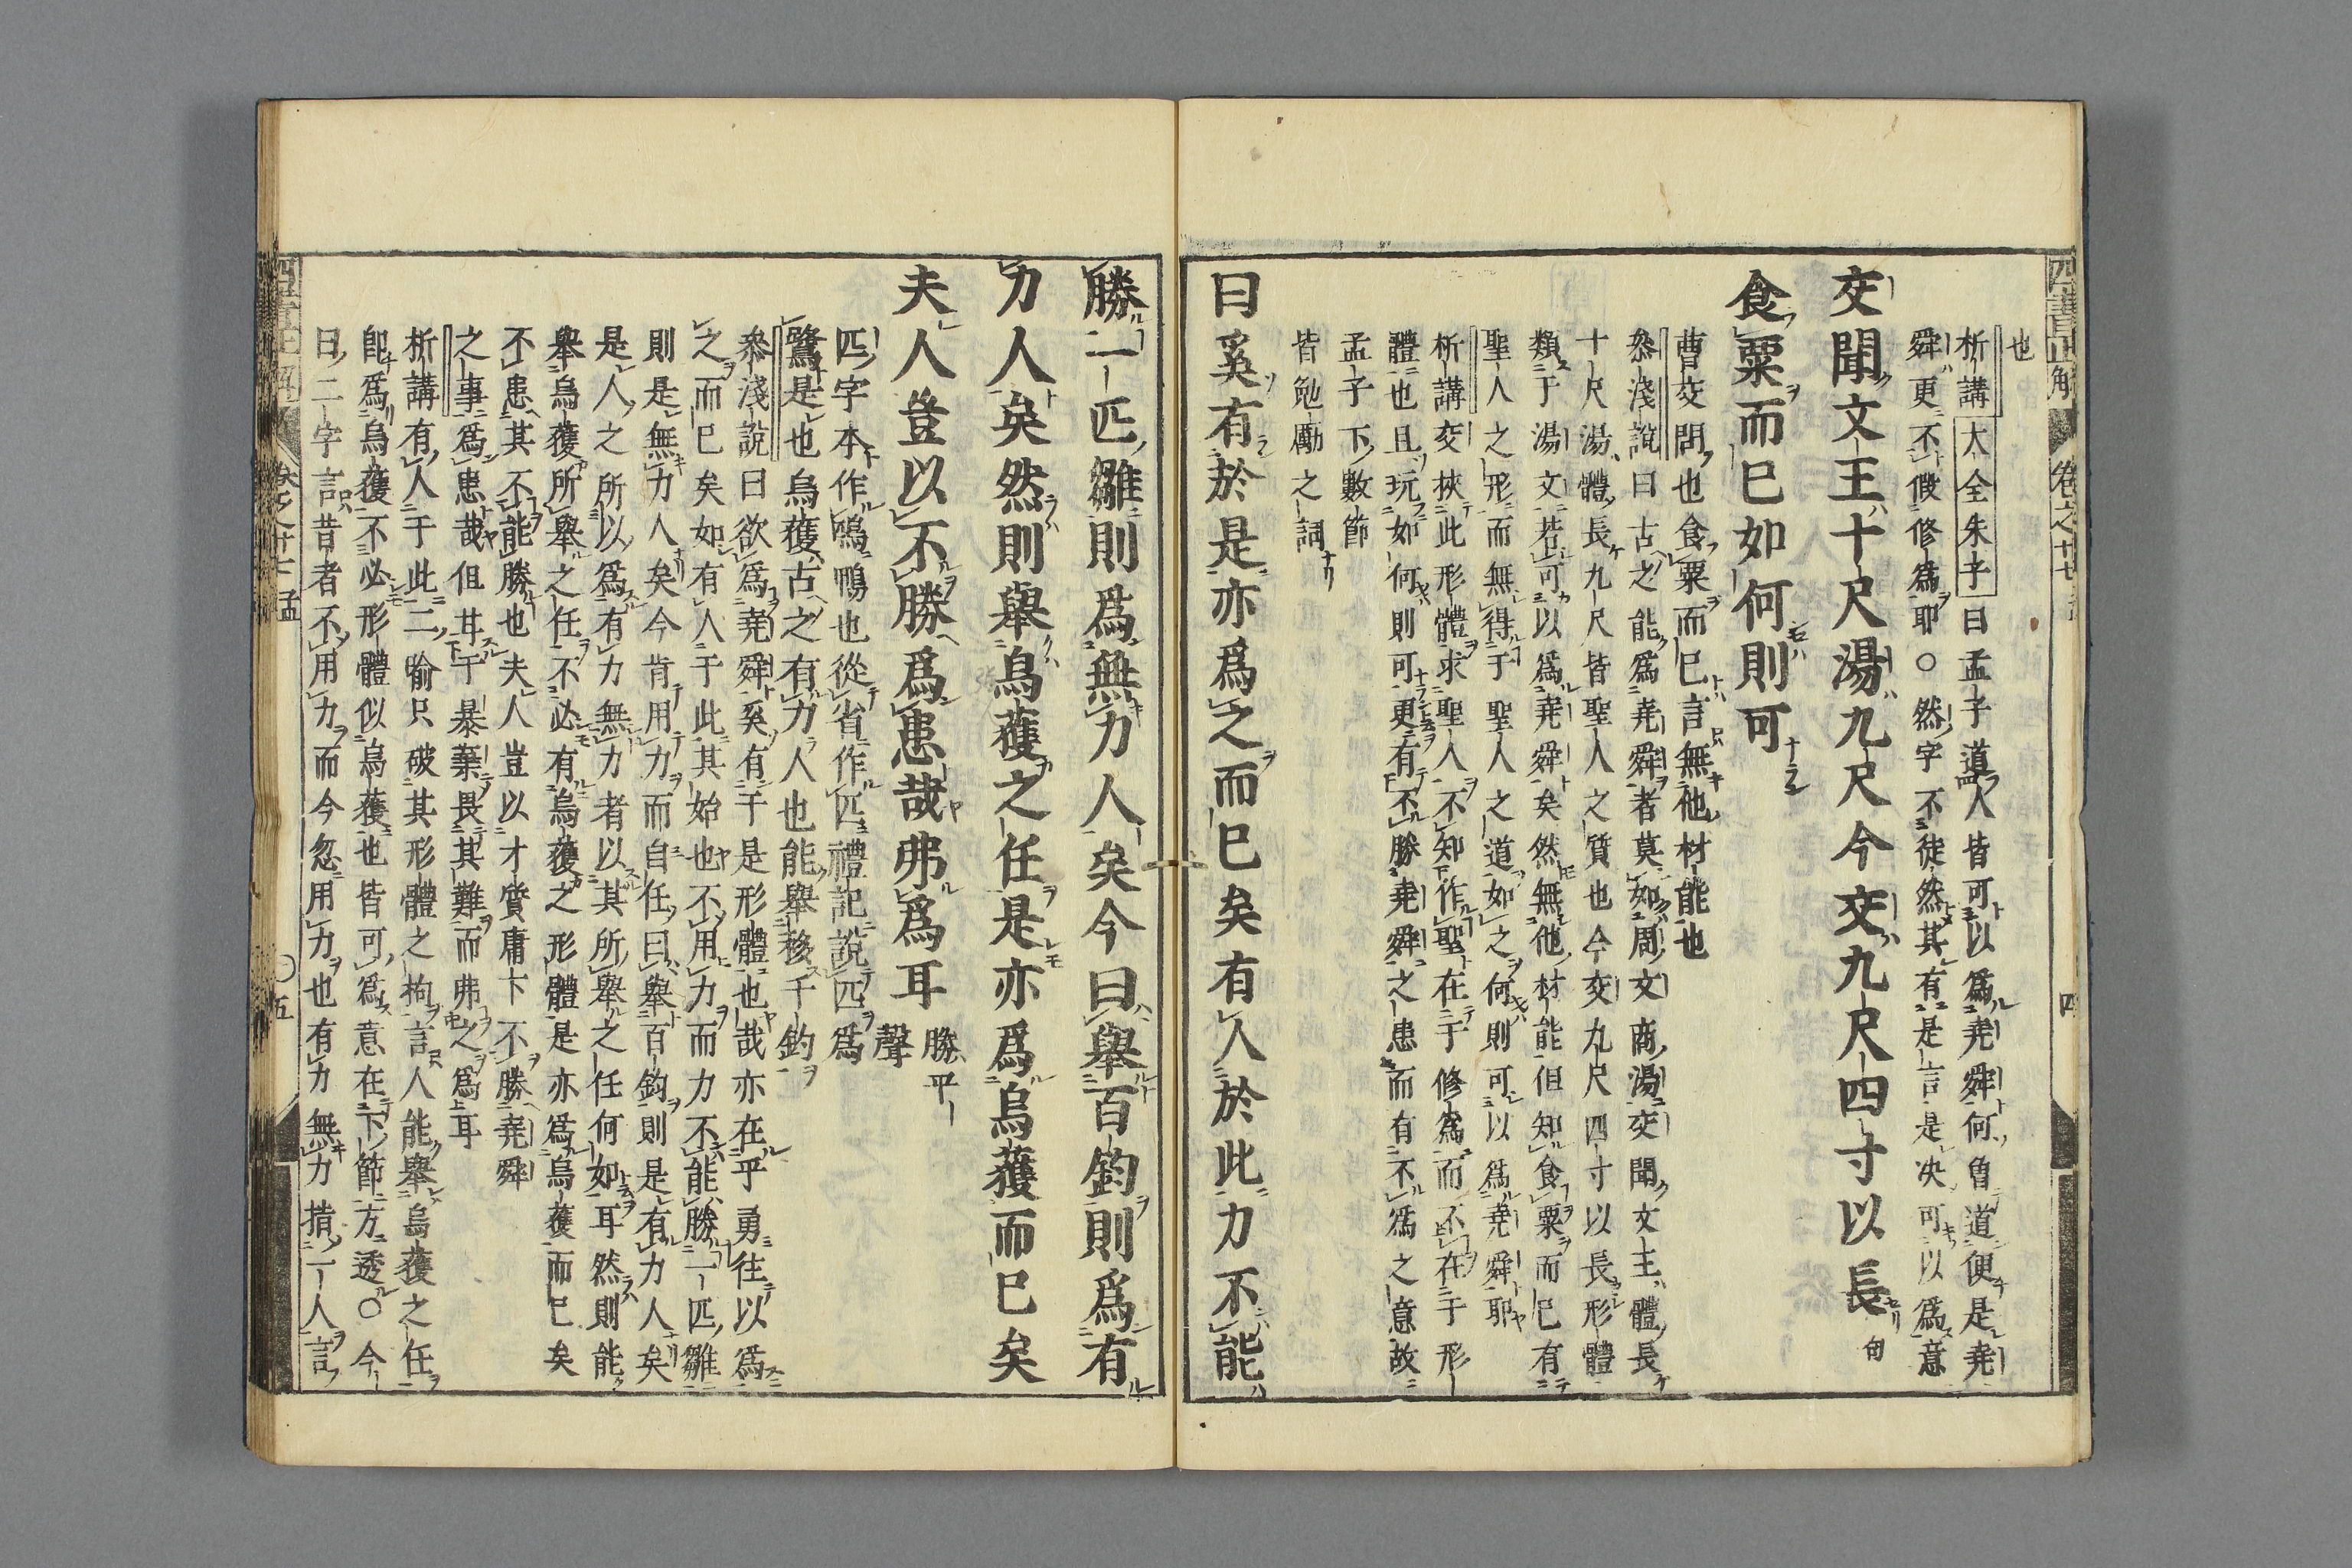 四書正解
卷之廿七
四
也
析講大全朱子曰孟子道人皆可以爲堯舜何曾道便是堯
舜更不假修爲耶○然字不徒然其有是言是决可以爲意
交聞文王十尺湯九尺今交九尺四寸以長
食粟而巳如何則可
曹交問也食粟而巳言無他材能也
叅淺說曰古之能爲堯舜者莫如周文商湯交聞文王體長
十尺湯體長九尺皆聖人之質也今交九尺四寸以長形體
類于湯文若可以爲堯舜矣然無他材能但知食粟而巳有
聖人之形而無得于聖人之道如之何則可以爲堯舜耶
析講交挾此形體求聖人不知作聖在于修爲而不在于形
體也且玩如何則可更有不勝堯舜之患而有不爲之意故
孟子下數節
皆勉勵之詞
曰奚有於是亦爲之而巳矣有人於此力不能
勝一匹雛則爲無力人矣今曰舉百鈞則爲有
力人矣然則舉烏獲之任是亦爲烏獲而巳矣
夫人豈以不勝爲患哉弗爲耳 勝平聲
匹字本作鴄鴨也從省作匹禮記說匹爲
鶩是也烏獲古之有力人也能舉移千鈞
叅淺說曰欲爲堯舜奚有于是形體也哉亦在乎勇往以爲
之而巳矣如有人于此其始也不用力而力不能勝一匹雛
則是無力人矣今肯用力而自任曰舉百鈞則是有力人矣
是人之所以爲有力無力者以其所舉之任何如耳然則能
舉烏獲所舉之任不必有烏獲之形體是亦爲烏獲而巳矣
不患其不能勝也夫人豈以才質庸下不勝堯舜
之事爲患哉但其于暴棄畏其難而弗之爲耳
析講有人于此二喻只破其形體之拘言人能舉烏獲之任
卽爲烏獲不必形體似烏獲也皆可爲意在下節方透○今
曰二字言昔者不用力而今忽用力也有力無力揹一人言
四書正解
卷之廿七 孟
○五